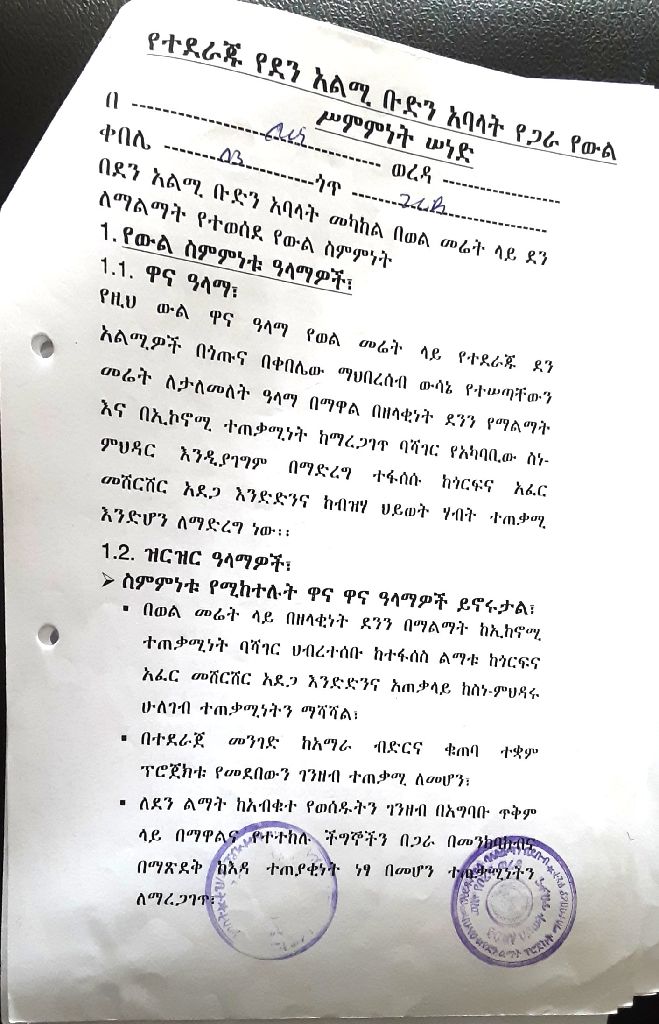 የተደራጁ የደን አልሚ ቡድን አባላት የጋራ የውል
ሥምምነት ሠነድ
በ ---------------------------------- ወረዳ ----------------
ቀበሌ ---------- 03 ----------ጎጥ --------------------------
በደን አልሚ ቡድን አባላት መካከል በወል መሬት ላይ ደን
ለማልማት የተወሰደ የውል ስምምነት
1. የውል ስምምነቱ ዓላማዎች፣
1.1. ዋና ዓላማ፣
የዚህ ውል ዋና ዓላማ የወል መሬት ላይ የተደራጁ ደን
አልሚዎች በጎጡና በቀበሌው ማህበረሰብ ውሳኔ የተሠጣቸውን
መሬት ለታለመለት ዓላማ በማዋል በዘላቂነት ደንን የማልማት
እና በኢኮኖሚ ተጠቃሚነት ከማረጋገጥ ባሻገር የአካባቢው ስነ-
ምህዳር እንዲያገግም በማድረግ ተፋሰሱ ከጎርፍና አፈር
መሸርሸር አደጋ እንድድንና ከብዝሃ ህይወት ሃብት ተጠቃሚ
እንድሆን ለማድረግ ነው፡፡
1.2. ዝርዝር ዓላማዎች፣
➢ ስምምነቱ የሚከተሉት ዋና ዋና ዓላማዎች ይኖሩታል፣
▪ በወል መሬት ላይ በዘላቂነት ደንን በማልማት ከኢኮኖሚ
ተጠቃሚነት ባሻገር ህብረተሰቡ ከተፋሰስ ልማቱ ከጎርፍና
አፈር መሸርሸር አደጋ እንድድንና አጠቃላይ ከስነ-ምህዳሩ
ሁለገብ ተጠቃሚነትን ማሻሻል፣
▪ በተደራጀ መንገድ ከአማራ ብድርና ቁጠባ ተቋም
ፕሮጀክቱ የመደበውን ገንዘብ ተጠቃሚ ለመሆን፣
▪ ለደን ልማት ከአብቁተ የወሰዱትን ገንዘብ በአግባቡ ጥቅም
ላይ በማዋልና የተተከሉ ችግኞችን በጋራ በመንከባከብና
በማጽደቅ ከእዳ ተጠያቂነት ነፃ በመሆን ተጠቃሚነትን
ለማረጋገጥ፣